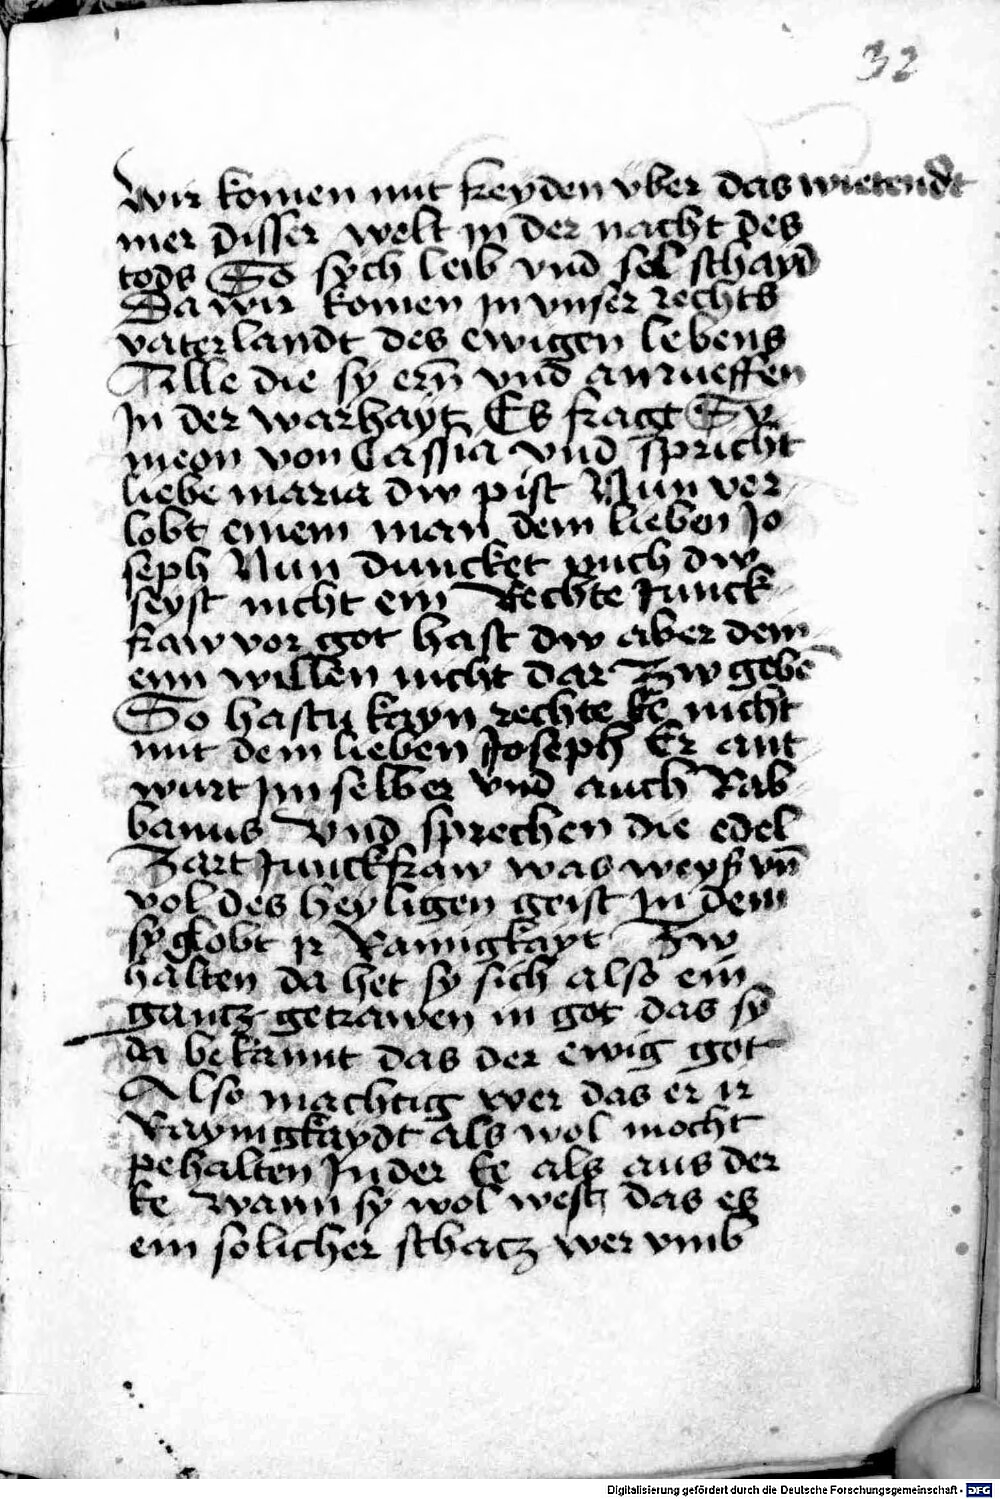 32
Wir komen mit freyden vber das wietendt
mer disser welt in der nacht des
tods So sych leib vnd sel schayd
Da wir komen in vnser rechts
vaterlandt des ewigen lebens
Alle die sy ern̄ vnd anrueffen
In der warhayt Es fragt Sy
meon von Cassia vnd spricht
liebe maria dw pist Nun ver
lobt einem man dem lieben Jo
seph Nun duncket mich dw
seyst nicht ein Rechte Junck
fraw vor got hast dw aber dem
ein willen nicht dar zw gebē
So hastu kayn rechte Ee nicht
mit dem lieben Joseph Er ant
wurt im selber vnd auch Rab
banus Vnd sprechen die edel
zart Junckfraw was weyß vn̄
vol des heyligen geist In dem
sy globt ir Rainigkayt zw
halten da het sy sich also ein
gantz getrawen in got das sy
da bekannt das der ewig got
Also machtig wer das er ir
Raynigkaydt als wol mocht
pehalten In der Ee als aus der
Ee Wann sy wol west das es
ein solicher schatz wer vmb
Digitalisierung gefördert durch die Deutsche Forschungsgemeinschaft - DFG